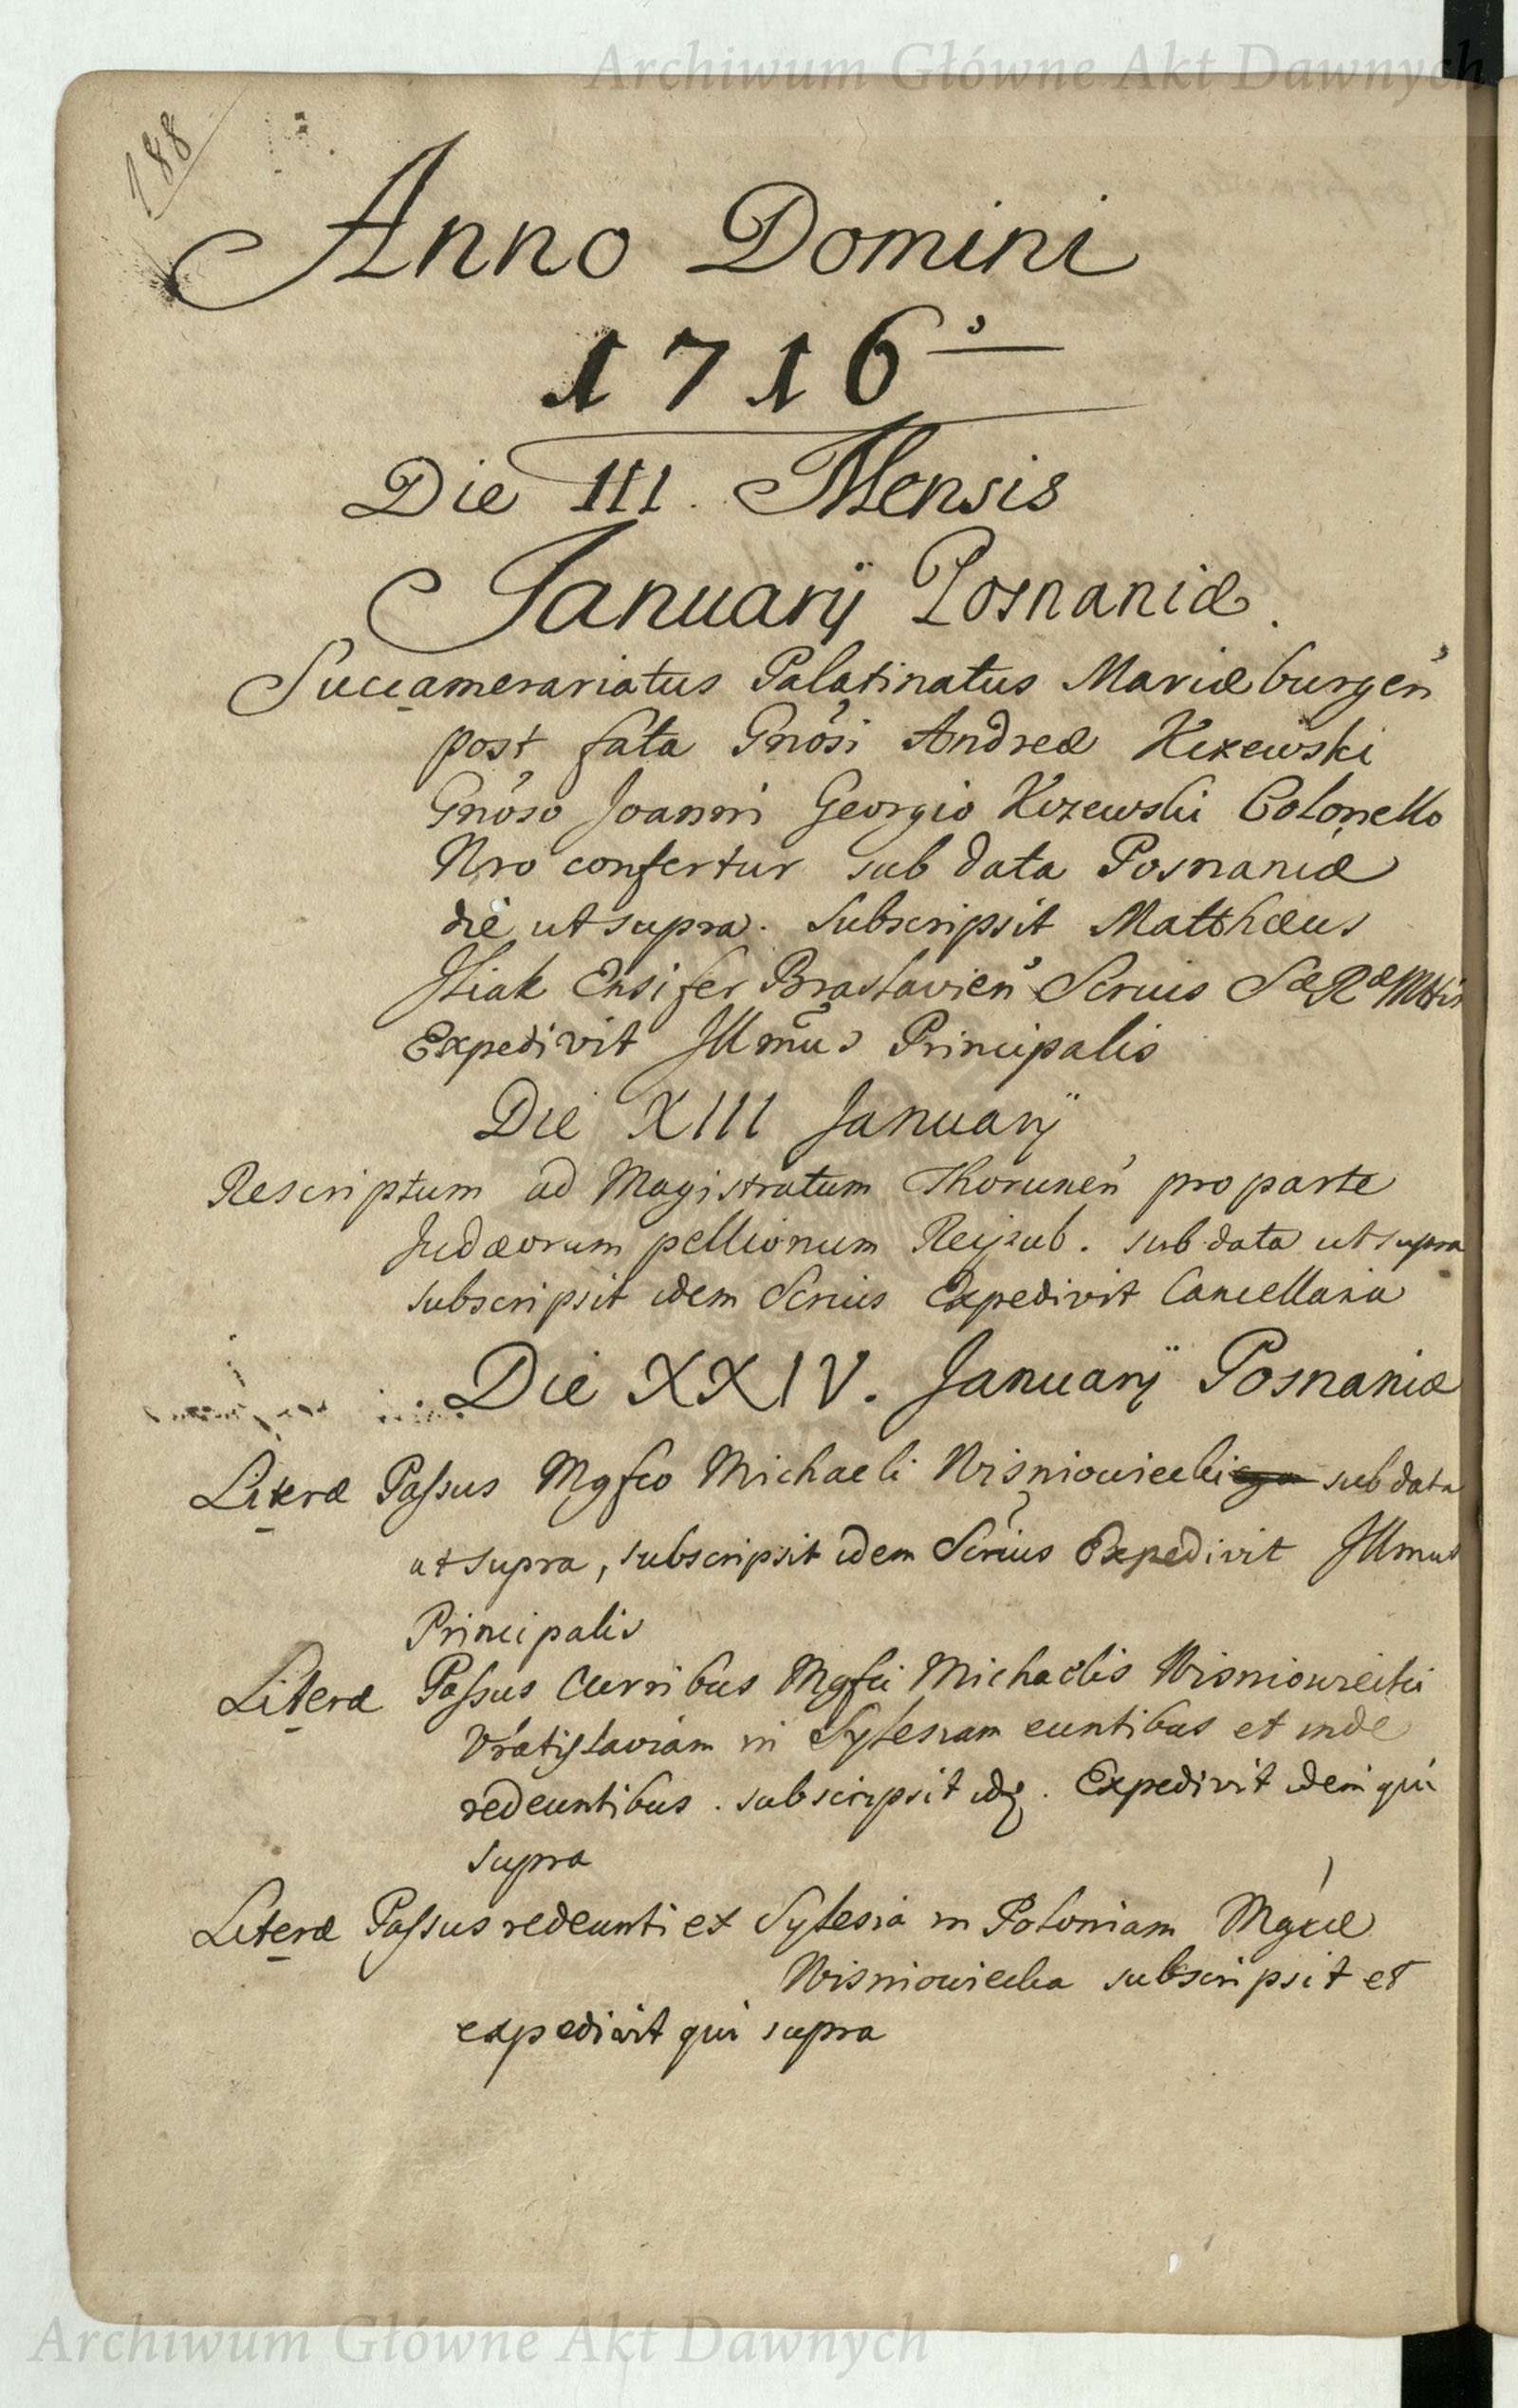 Archiwum Główne Akt Dawnych
188
Anno Domini
1716⁰
Die III. Mensis
Januarij Posnaniæ.
Succamerariatus Palatinatus Mariæburgen̄
post fata Gnōsi Andreæ Kczewski
Gnōso Joanni Georgio Kczewski Colonello
Nro confertur sub data Posnaniæ
die ut supra. Subscripsit Matthæus
Ensifer Braslavien̄ Scrius SæRæMttis
Expedivit Illmūs Principalis
Die XIII Januarij
Rescriptum ad Magistratum Thorunen̄ pro parte
Judæorum pellionum sub data ut supra
subscripsit idem Scrius Expedivit Cancellaria
Die XXIV. Januarij Posnaniæ
Literæ Passus Mgfco Michaeli Wisniowiecki sub data
ut supra, subscripsit idem Scrius Expedivit Illmus
Principalis
Literæ Passus Curribus Mgfci Michaelis Wisniowiecki
Vratislaviam in Sylesiam euntibus et inde
redeuntibus. subscripsit idē. Expedivit idem qui
supra
Literæ Passus redeunti ex Sylesia in Poloniam
Wisniowiecka subscripsit et
expedivit qui supra
Archiwum Główne Akt Dawnych